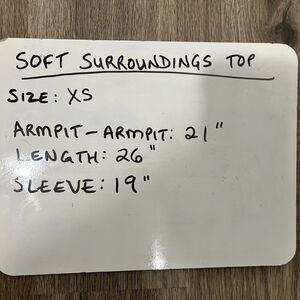 SOFT SURROUNDINGS TOP
SIZE: XS
ARMPIT-ARMPIT: 21"
LENGTH: 26"
SLEEVE: 19"